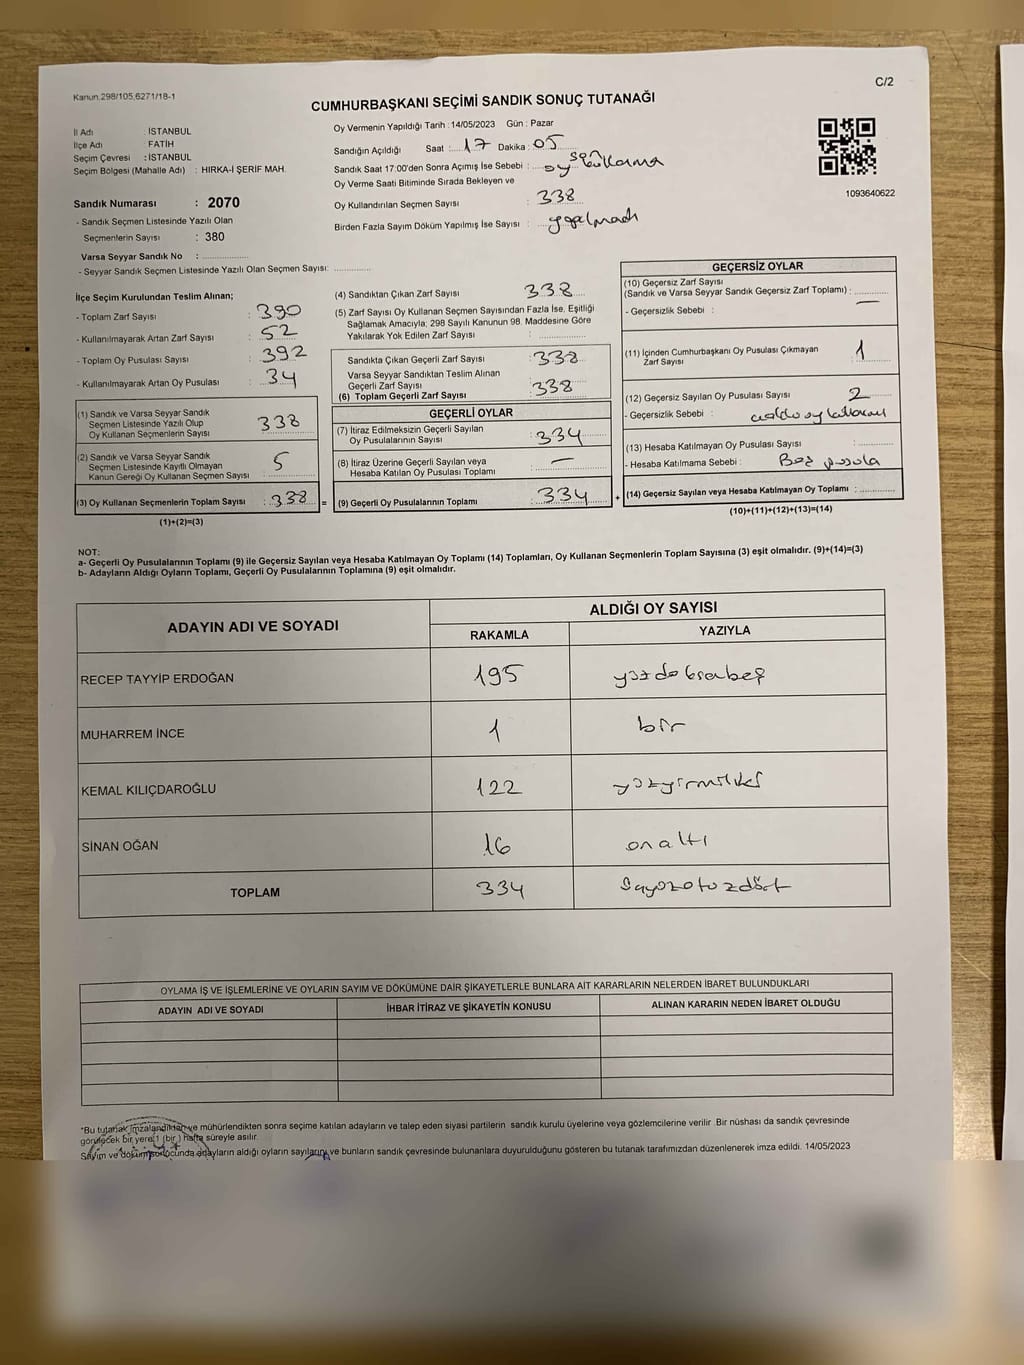 Kanun.298/105,6271/18-1
C/2
CUMHURBAŞKANI SEÇİMİ SANDIK SONUÇ TUTANAĞI
İl Adı : İSTANBUL
İlçe Adı : FATİH
Seçim Çevresi : İSTANBUL
Seçim Bölgesi (Mahalle Adı) : HIRKA-İ ŞERİF MAH.
Sandık Numarası : 2070
- Sandık Seçmen Listesinde Yazılı Olan
Seçmenlerin Sayısı : 380
Varsa Seyyar Sandık No :
- Seyyar Sandık Seçmen Listesinde Yazılı Olan Seçmen Sayısı:
Oy Vermenin Yapıldığı Tarih :14/05/2023 Gün : Pazar
Sandığın Açıldığı Saat : 17 Dakika : 05
Sandık Saat 17.00'den Sonra Açımış İse Sebebi : oy
Oy Verme Saati Bitiminde Sırada Bekleyen ve
Oy Kullandırılan Seçmen Sayısı : 338
Birden Fazla Sayım Döküm Yapılmış İse Sayısı :
1093640622
İlçe Seçim Kurulundan Teslim Alınan;
- Toplam Zarf Sayısı : 390
- Kullanılmayarak Artan Zarf Sayısı : 52
- Toplam Oy Pusulası Sayısı : 392
- Kullanılmayarak Artan Oy Pusulası : 34
(1) Sandık ve Varsa Seyyar Sandık
Seçmen Listesinde Yazılı Olup
Oy Kullanan Seçmenlerin Sayısı : 338
(2) Sandık ve Varsa Seyyar Sandık
Seçmen Listesinde Kayıtlı Olmayan
Kanun Gereği Oy Kullanan Seçmen Sayısı : 5
(3) Oy Kullanan Seçmenlerin Toplam Sayısı : 338 =
(1)+(2)=(3)
(4) Sandıktan Çıkan Zarf Sayısı 338
(5) Zarf Sayısı Oy Kullanan Seçmen Sayısından Fazla İse, Eşitliği
Sağlamak Amacıyla; 298 Sayılı Kanunun 98. Maddesine Göre
Yakılarak Yok Edilen Zarf Sayısı :
Sandıkta Çıkan Geçerli Zarf Sayısı : 338
Varsa Seyyar Sandıktan Teslim Alınan
Geçerli Zarf Sayısı : 338
(6) Toplam Geçerli Zarf Sayısı
GEÇERLİ OYLAR
(7) İtiraz Edilmeksizin Geçerli Sayılan
Oy Pusulalarının Sayısı : 334
(8) İtiraz Üzerine Geçerli Sayılan veya
Hesaba Katılan Oy Pusulası Toplamı : —
(9) Geçerli Oy Pusulalarının Toplamı : 334 +
GEÇERSİZ OYLAR
(10) Geçersiz Zarf Sayısı
(Sandık ve Varsa Seyyar Sandık Geçersiz Zarf Toplamı) :
- Geçersizlik Sebebi : —
(11) İçinden Cumhurbaşkanı Oy Pusulası Çıkmayan
Zarf Sayısı : 1
(12) Geçersiz Sayılan Oy Pusulası Sayısı : 2
- Geçersizlik Sebebi :
(13) Hesaba Katılmayan Oy Pusulası Sayısı :
- Hesaba Katılmama Sebebi : Boş pusula
(14) Geçersiz Sayılan veya Hesaba Katılmayan Oy Toplamı :
(10)+(11)+(12)+(13)=(14)
NOT:
a- Geçerli Oy Pusulalarının Toplamı (9) ile Geçersiz Sayılan veya Hesaba Katılmayan Oy Toplamı (14) Toplamları, Oy Kullanan Seçmenlerin Toplam Sayısına (3) eşit olmalıdır. (9)+(14)=(3)
b- Adayların Aldığı Oyların Toplamı, Geçerli Oy Pusulalarının Toplamına (9) eşit olmalıdır.
ADAYIN ADI VE SOYADI
ALDIĞI OY SAYISI
RAKAMLA YAZIYLA
RECEP TAYYİP ERDOĞAN 195 yüzdoksanbeş
MUHARREM İNCE 1 bir
KEMAL KILIÇDAROĞLU 122 yüzyirmiiki
SİNAN OĞAN 16 onaltı
TOPLAM 334 üçyüzotuzdört
OYLAMA İŞ VE İŞLEMLERİNE VE OYLARIN SAYIM VE DÖKÜMÜNE DAİR ŞİKAYETLERLE BUNLARA AİT KARARLARIN NELERDEN İBARET BULUNDUKLARI
ADAYIN ADI VE SOYADI İHBAR İTİRAZ VE ŞİKAYETİN KONUSU ALINAN KARARIN NEDEN İBARET OLDUĞU
*Bu tutanak imzalandıktan ve mühürlendikten sonra seçime katılan adayların ve talep eden siyasi partilerin sandık kurulu üyelerine veya gözlemcilerine verilir. Bir nüshası da sandık çevresinde
görülecek bir yere 1 (bir ) hafta süreyle asılır.
Sayım ve döküm sonucunda adayların aldığı oyların sayılarını ve bunların sandık çevresinde bulunanlara duyurulduğunu gösteren bu tutanak tarafımızdan düzenlenerek imza edildi. 14/05/2023